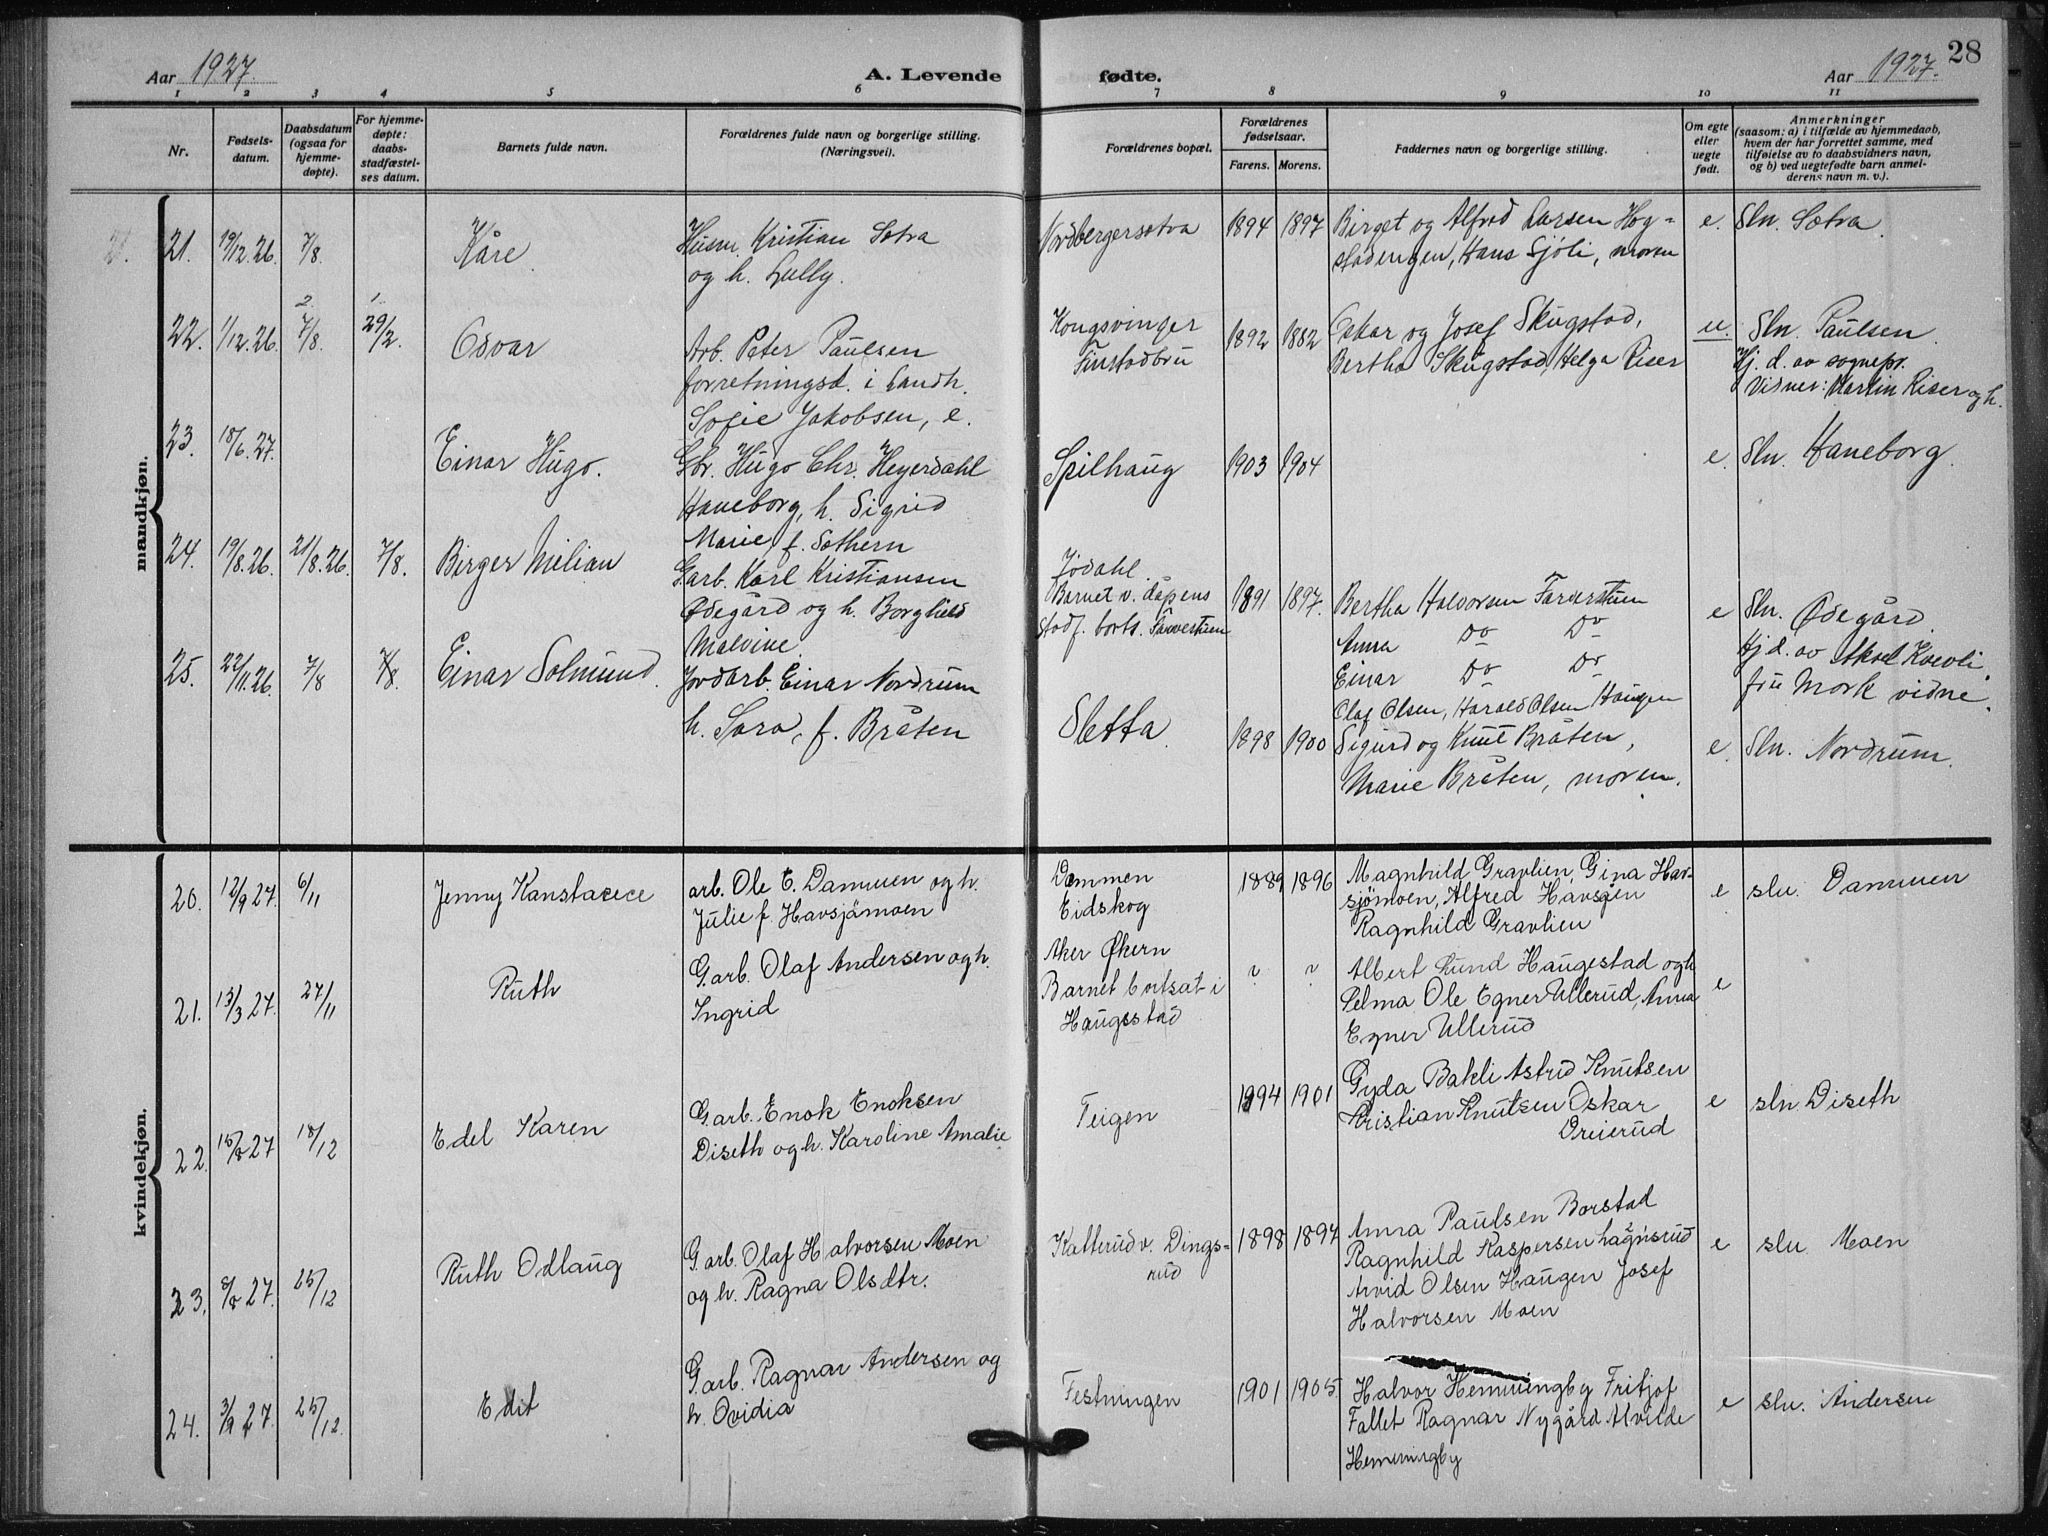 Aar 1927. A. Levende fødte. Aar 1927. 28
1 2 3 4 5 6 7 8 9 10 11
Nr.
Fødsels-
datum.
Daabsdatum
(ogsaa for
hjemme-
døpte).
For hjemme-
døpte:
daabs-
stadfæstel-
ses datum.
Barnets fulde navn.
Forældrenes fulde navn og borgerlige stilling.
(Næringsvei).
Forældrenes bopæl.
Forældrenes
fødselsaar.
Farens. Morens.
Faddernes navn og borgerlige stilling.
Om egte
eller
uegte
født.
Anmerkninger
(saasom: a) i tilfælde av hjemmedaab,
hvem der har forrettet samme, med
tilføielse av to daabsvidners navn,
og b) ved uegtefødte barn anmel-
derens navn m. v.).
mandkjøn.
21. 19/12.26. 7/8. Kåre.
Husm. Kristian Sætra
og h. Lully.
Nordbergersætra 1894 1897
Birget og Alfred Larsen Hog-
stadengen, Hans Sjöli, moren
e. Sln. Sætra.
22. 1/12.26. 2. 7/8. 1. 29/2. Osvar
Arb. Peter Paulsen
forretningsd. i Landh.
Sofie Jakobsen, e.
Kongsvinger
Finstadbru
1892 1882
Oskar og Josef Skugstad,
Bertha Skugstad, Helga Riser
u. Sln. Paulsen.
Hj. d. av sognepr.
Vidner: Martin Riser og h.
23. 18/6.27. Einar Hugo.
Gbr. Hugo Chr. Heyerdahl
Haneborg, h. Sigrid
Marie, f. Sothern
Spilhaug 1903 1904 e. Sln. Haneborg.
24. 19/8.26. 21/8.26. 7/8. Birger Milian
Garb. Karl Kristiansen
Ødegård og h. Borghild
Malvine.
Jödahl.
Barnet v. dåpens
stadf. borts.
1891 1897.
Bertha Halvorsen
Anna Do Do
Einar Do Do
Olaf Olsen, Harald Olsen Haugen
e Sln. Ødegård.
Hj. d. av Aksel Kvevli.
fru Mork vidne.
25. 22/11.26. 7/8 7/8. Einar Solmund.
Jordarb. Einar Nordrum
h. Sara, f. Bråten
Sletta. 1898 1900
Sigurd og Knut Bråten,
Marie Bråten, moren.
e. Sln. Nordrum.
kvindekjøn.
20. 12/9 27. 6/11 Jenny Konstance
arb. Ole E. Dammen og h.
Julie f. Havsjömoen
Dammen
Eidskog
1889 1896
Magnhild Gravlien, Gina Hav-
sjömoen, Alfred Havsjøen
Ragnhild Gravlien
e sln. Dammen
21. 13/3 27. 27/11 Ruth
Garb. Olaf Andersen og h.
Ingrid
Aker Økern
Barnet bortsat i
Haugestad
? ?
Albert Lund Haugestad og h
Selma Ole Egner Ullerud, Anna
Egner Ullerud
e
22. 15/8 27 18/12 Edel Karen
Garb. Enok Enoksen
Diseth og h. Karoline Amalie
Teigen 1894 1901
Gyda Bakli Astrid Knutsen
Kristian Knutsen Oskar
Dreierud
e sln. Diseth
23. 8/8 27. 25/12 Ruth Odlaug
Garb. Olaf Halvorsen Moen
og h. Ragna Olsdtr.
Katterud v. Dings-
rud
1898 1897
Anna Paulsen Borstad
Ragnhild Kaspersen
Arvid Olsen Haugen Josef
Halvorsen Moen
e sln. Moen
24. 3/9 27. 25/12 Edit
Garb. Ragnar Andersen og
h. Ovidia
Festningen 1901 1905
Halvor Hemmingby Fritjof
Fallet Ragnar Nygård Alvilde
Hemmingby
e sln. Andersen